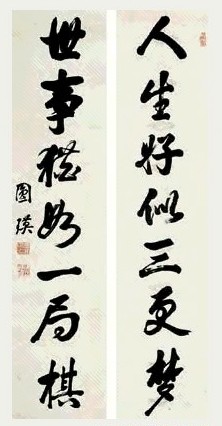 人生好似三更梦
世事犹如一局棋
國瑛